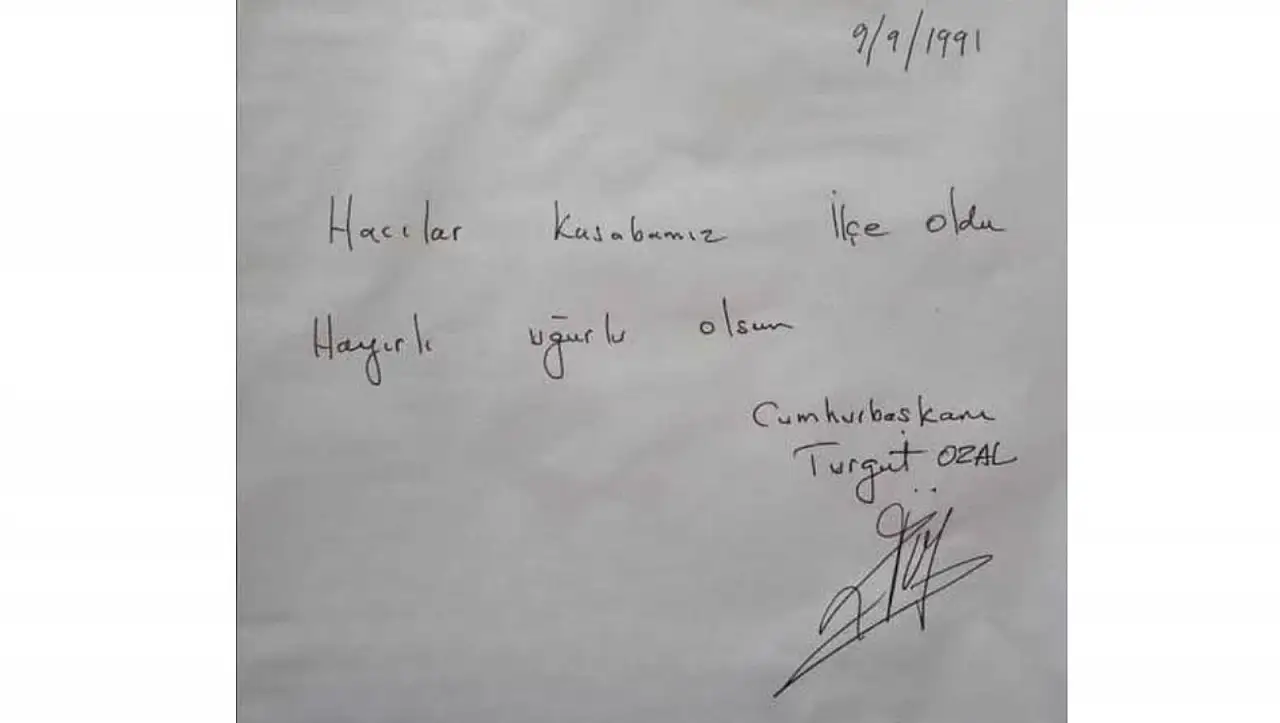 9/9/1991
Hacılar kasabamız İlçe oldu
Hayırlı uğurlu olsun
Cumhurbaşkanı
Turgut OZAL